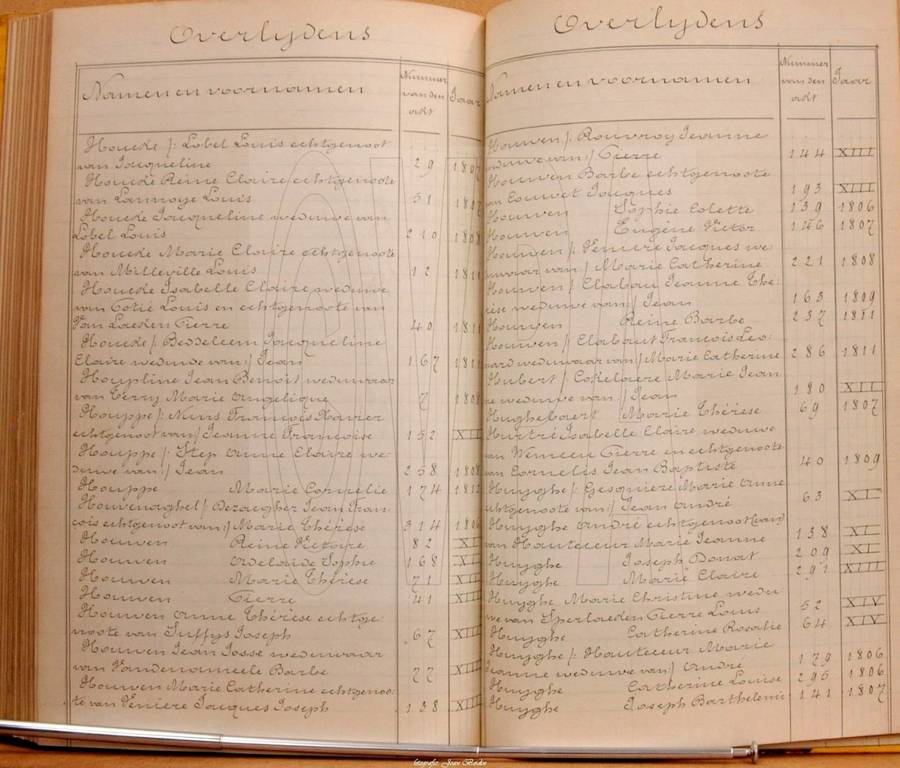 Overlydens
Namen en voornamen
Nummer van den akt
Jaar
Houcke /: Lobel Louis echtgenoot
van Jacqueline 29 180
Houcke Reine Claire echtgenoote
van Lannoye Louis 51 180
Houcke Jacqueline weduwe van
Lobel Louis 210 1808
Houcke Marie Claire echtgenoote
van Milleville Louis 12 181
Houcke Isabelle Claire weduwe
van Cotié Louis en echtgenoote van
Van Laeken Pierre 40 1811
Houcke /: Bedeleem Jacqueline
Claire weduwe van :/ Jean 167 1811
Houpline Jean Benoit weduwaar
van Terry Marie Angelique 7 1808
Houppe /: Nuns François Xavier
echtgenoot van :/ Jeanne Françoise 152 XII
Houppe /: Step Anne Claire we-
duwe van :/ Jean 258 1808
Houppe Marie Cornelie 174 181
Houvenaghel /: Dezaegher Jean Fran-
cois echtgenoot van :/ Marie Thérèse 314 180
Houwen Reine Victoire 82 XI
Houwen Adelaïde Sophie 168 XI
Houwen Marie Thérèse 71 XII
Houwen Pierre 41 XII
Houwen Anne Thérèse echtge-
noote van Suffys Joseph 67 XIII
Houwen Jean Josse weduwaar
van Vandenameele Barbe 77 XIII
Houwen Marie Catherine echtgenoo-
te van Penière Jacques Joseph 138 XIII
Overlydens
Namen en voornamen
Nummer van den akt
Jaar
Houwen /: Rouvroy Jeanne
weduwe van :/ Pierre 144 XIII
Houwen Barbe echtgenoote
van Couvet Jacques 193 XIII
Houwen Sophie Colette 139 1806
Houwen Eugène Victor 146 1807
Houwen /: Penière Jacques we-
duwaar van :/ Marie Catherine 221 1808
Houwen /: Clabau Jeanne Thé-
rèse weduwe van :/ Jean 163 1809
Houwen Reine Barbe 237 1811
Houwen /: Clabaut François Léo-
nard weduwaar van :/ Marie Catherine 286 1811
Hubert /: Cokelaere Marie Jean-
ne weduwe van :/ Jean 180 XII
Hughebaert Marie Thérèse 69 1807
Hurtré Isabelle Claire weduwe
van Wemeen Pierre en echtgenoote
van Cornelis Jean Baptiste 40 1809
Huyghe /: Gesquiere Marie Anne
echtgenoote van :/ Jean André 63 XI
Huyghe André echtgenoot (van)
van Hauteceur Marie Jeanne 138 XI
Huyghe Joseph Donat 209 XI
Huyghe Marie Claire 291 XIII
Huyghe Marie Christine wedu-
we van Sperlaeken Pierre Louis 52 XIV
Huyghe Catherine Rosalie 64 XIV
Huyghe /: Hauteceur Marie
Jeanne weduwe van :/ André 179 1806
Huyghe Catherine Louise 295 1806
Huyghe Joseph Barthelemi 141 1807